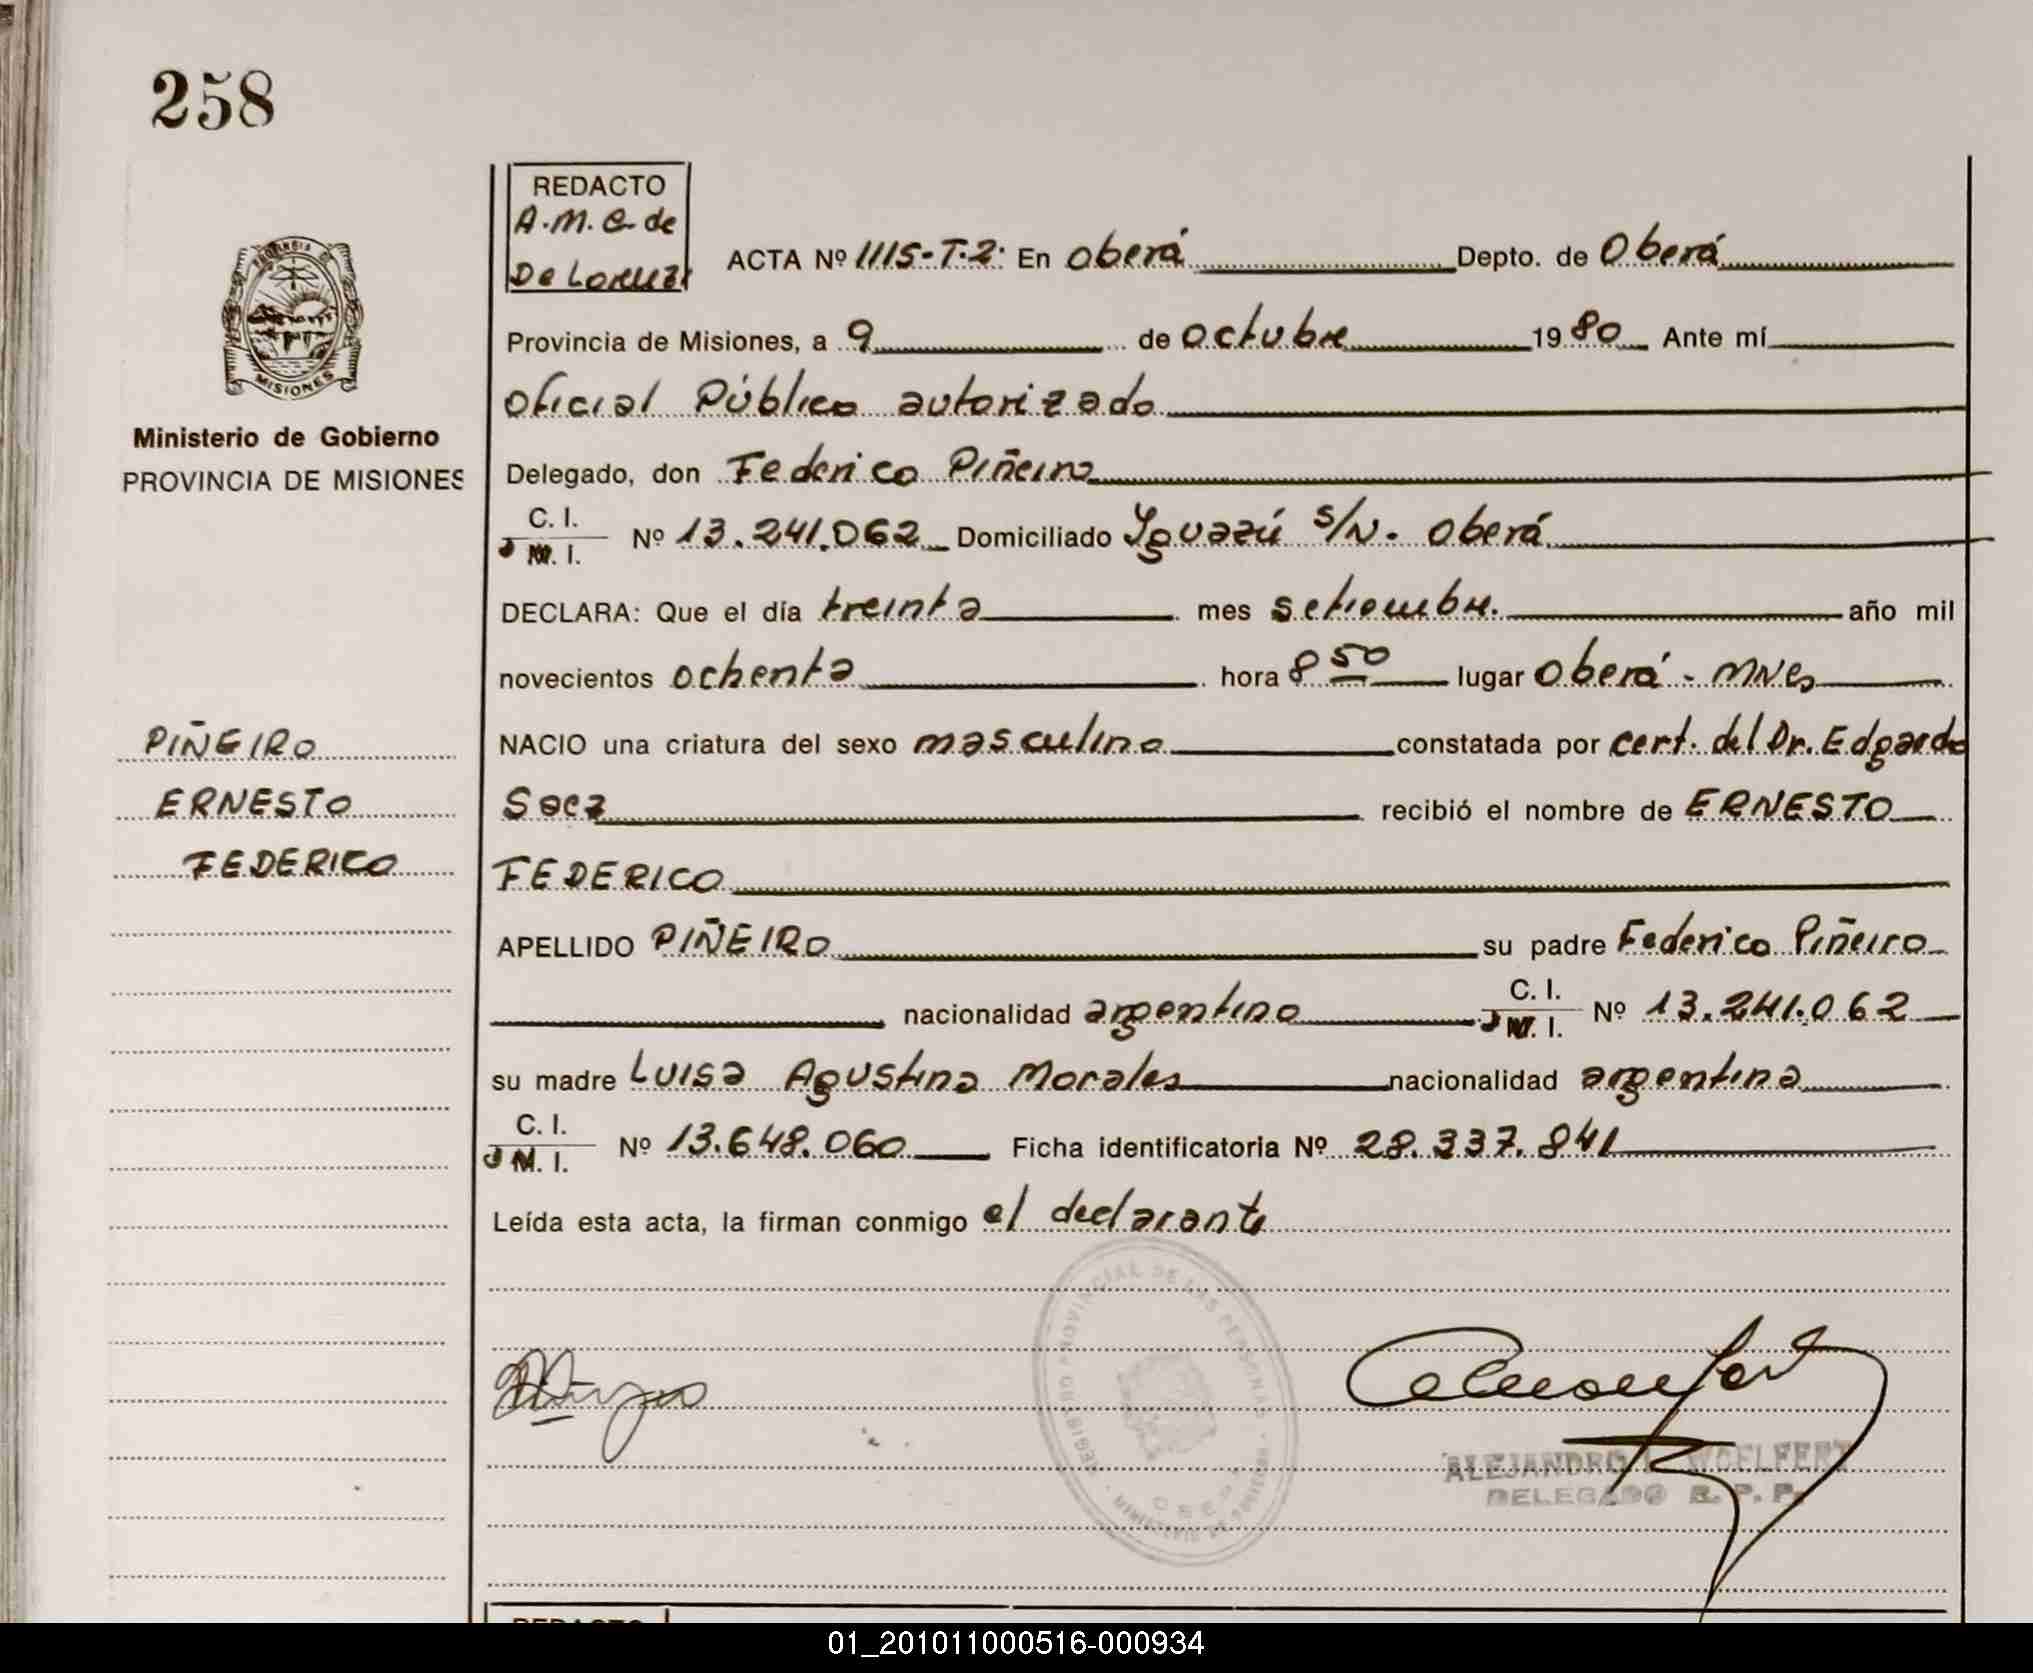 258
REDACTO
A.M.C. de
De Lorenzi
ACTA Nº 1115-T-2. En Oberá Depto. de Oberá
Provincia de Misiones, a 9 de octubre 1980 Ante mí
Oficial Público autorizado
Ministerio de Gobierno
PROVINCIA DE MISIONES
MISIONES
Delegado, don Federico Piñeiro
C. I.
M. I. Nº 13.241.062 Domiciliado Yguazú s/N. Oberá
DECLARA: Que el día treinta mes setiembre. año mil
novecientos ochenta hora 8 50 lugar Oberá - MNes
PIÑEIRO
ERNESTO
FEDERICO
NACIO una criatura del sexo masculino constatada por cert. del Dr. Edgardo
Saez recibió el nombre de ERNESTO
FEDERICO
APELLIDO PIÑEIRO su padre Federico Piñeiro
nacionalidad argentino C. I.
M. I. Nº 13.241.062
su madre Luisa Agustina Morales nacionalidad argentina
C. I.
M. I. Nº 13.648.060 Ficha identificatoria Nº 28.337.841
Leída esta acta, la firman conmigo el declarante
REGISTRO PROVINCIAL DE LAS PERSONAS
MINISTERIO DE GOBIERNO
ALEJANDRO WOELFERT
DELEGADO R. P. P.
REDACTO
01_201011000516-000934